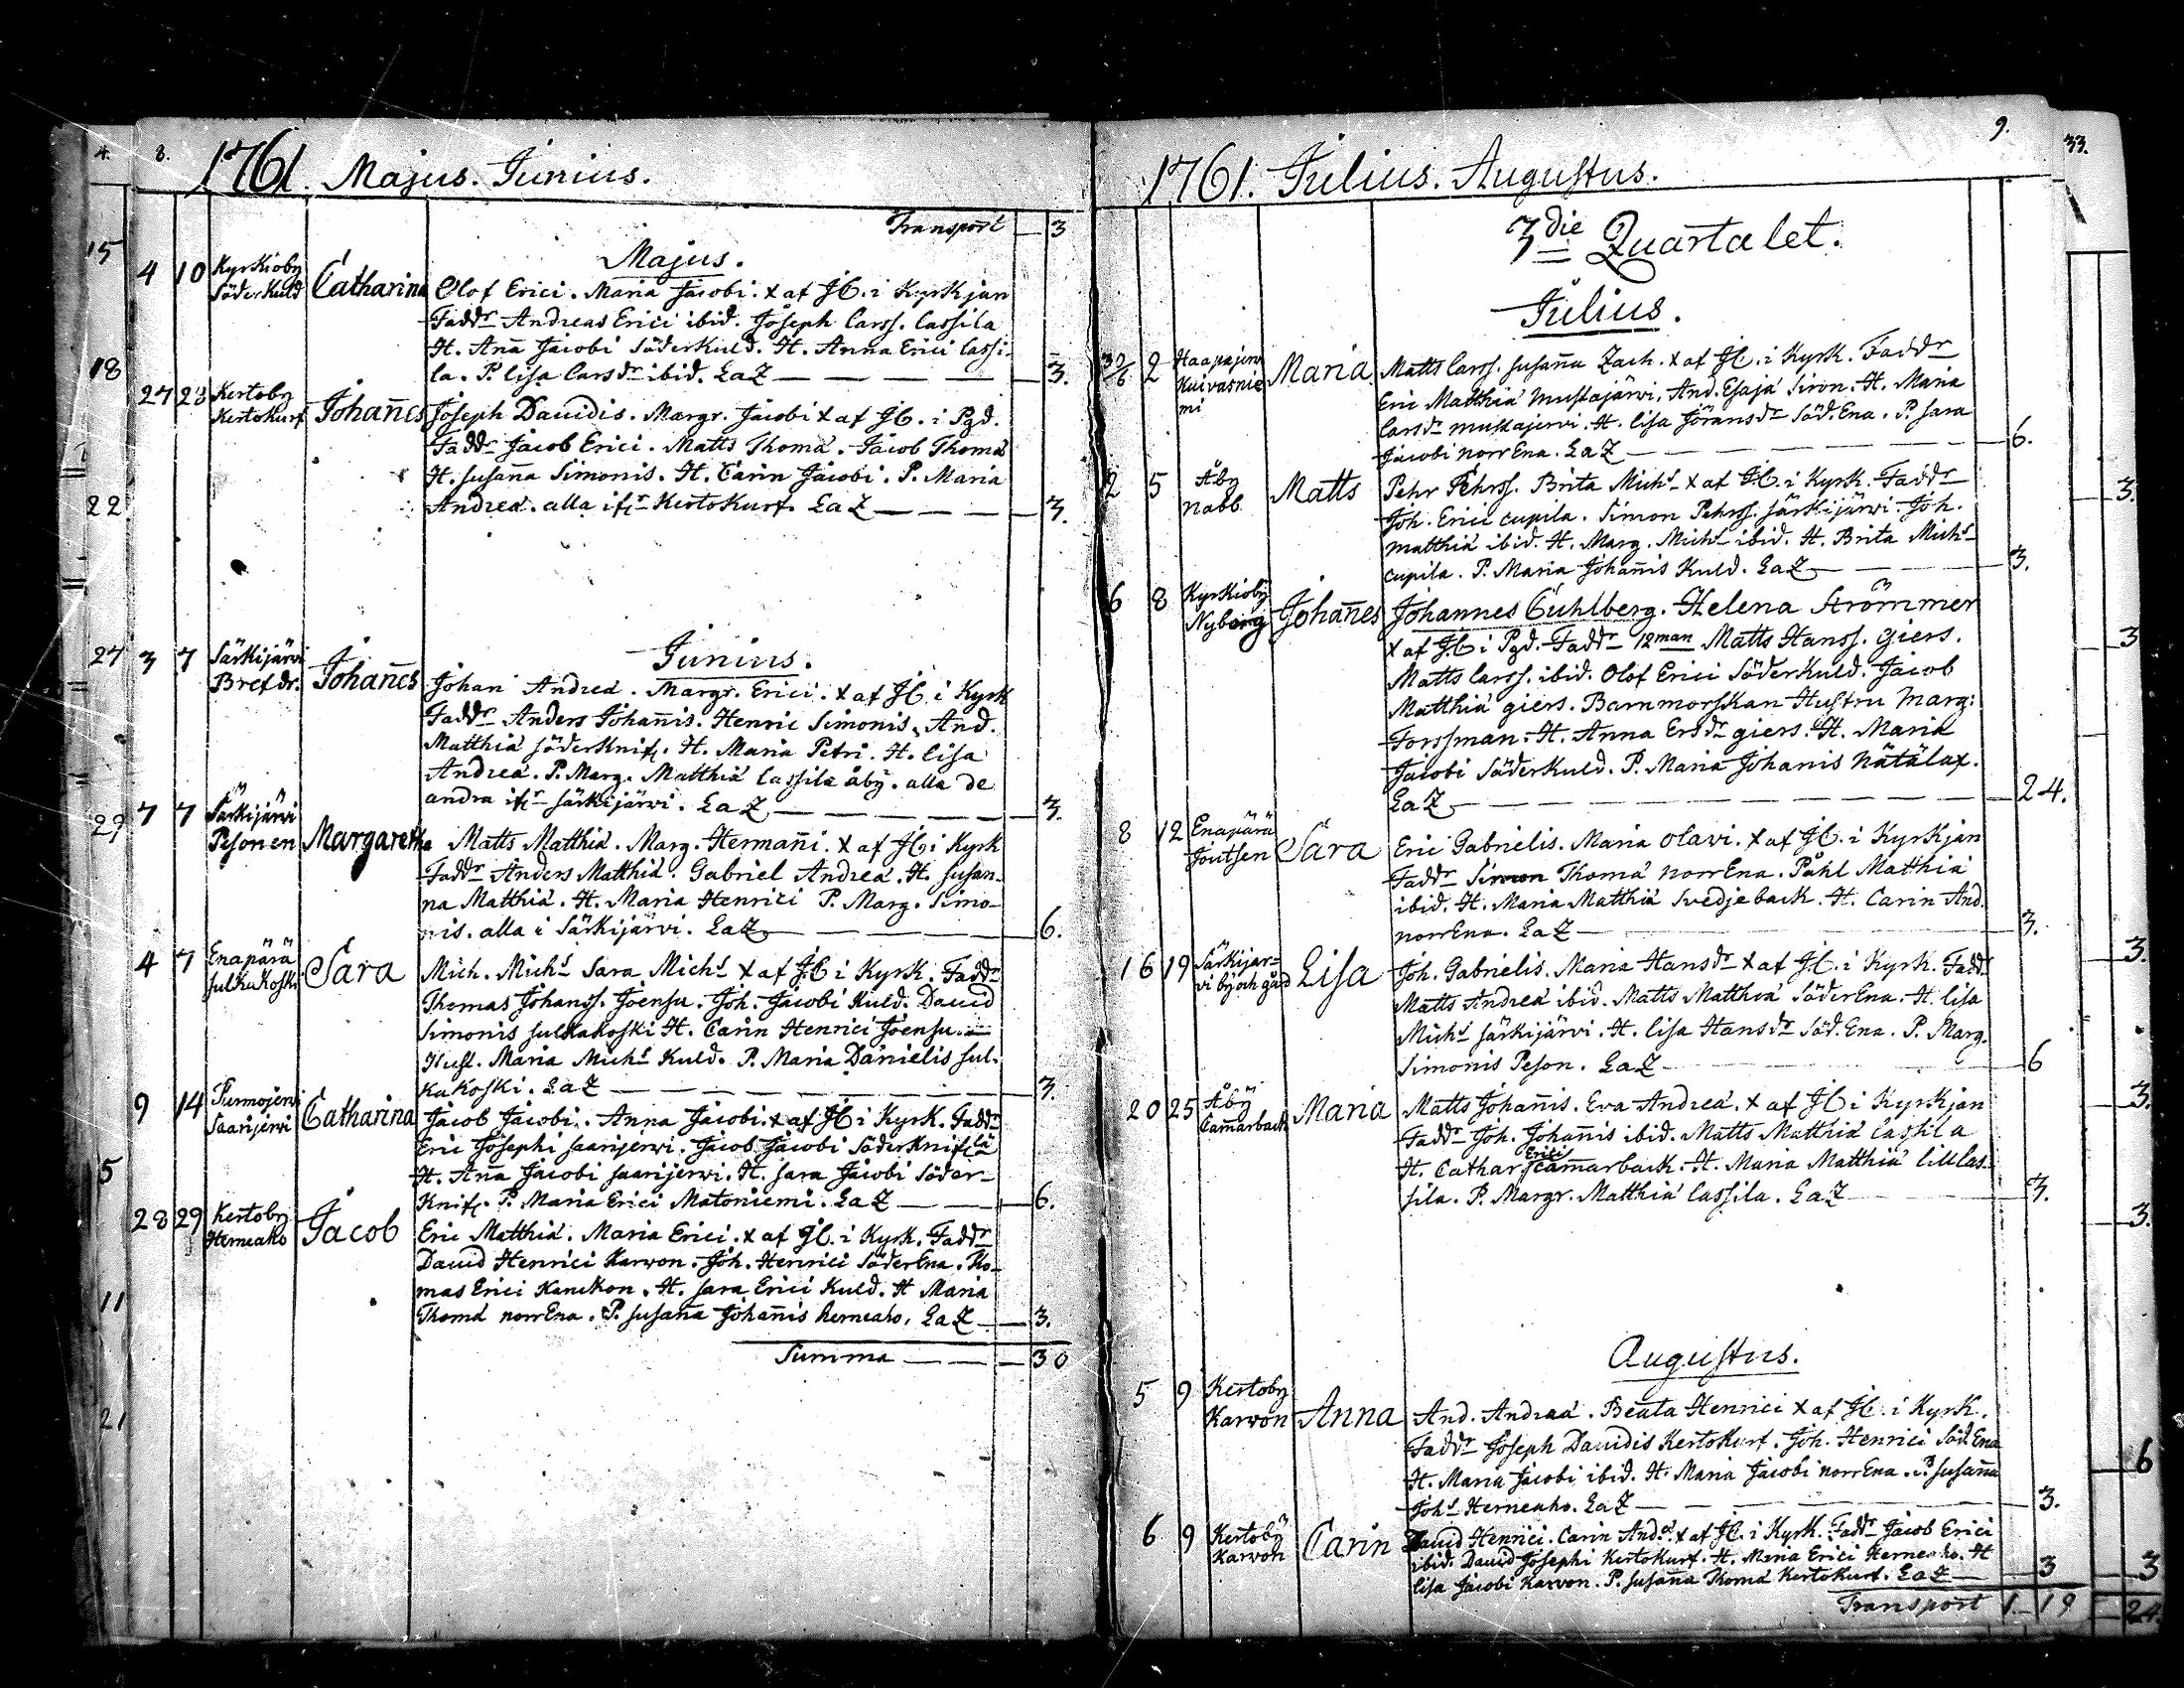 8.
1761. Majus. Junius.
Transport — 3
Majus.
4 10 Kyrkioby Söderkuld Catharina Olof Erici. Maria Jacobi. x af JC. i Kyrkjan
Faddr Andreas Erici ibid. Joseph Larss. Lassila
H. Aña Jacobi Söderkuld. H. Anna Erici Lassi-
la. P. Lisa Larsdr ibid. LaZ — 3.
27 28 Kertoby Kertokurf Johañes Joseph Davidis. Margr. Jacobi x af JC. i Pgd.
Faddr Jacob Erici. Matts Thomæ. Jacob Thomæ
H. Susaña Simonis. H. Carin Jacobi. P. Maria
Andreæ. alla ifr Kertokurf. LaZ — 3.
Junius.
3 7 Särkijärvi Brefdr. Johañes Johan Andreæ. Margr. Erici. x af JC i Kyrk
Faddr Anders Johañis. Henric Simonis. And.
Matthiæ Söderknif. H. Maria Petri. H. Lisa
Andreæ. P. Marg. Matthiæ Lassila åby. alla de
andra ifr Särkijärvi. LaZ — 3.
7 7 Särkijärvi Pesonen Margaretha Matts Matthiæ. Marg. Hermañi. x af JC i Kyrk
Faddr Anders Matthiæ. Gabriel Andreæ. H. Susan-
na Matthiæ. H. Maria Henrici P. Marg. Simo-
nis. alla i Särkijärvi. LaZ — 6.
4 7 Enapärä Sulkukoski Sara Mich. Michs Sara Michs x af JC i Kyrk. Faddr
Thomas Johanss. Joensu. Joh. Jacobi Kuld. David
Simonis Sulkakoski H. Carin Henrici Joensu.
Hust. Maria Michs Kuld. P. Maria Danielis Sul-
kakoski. LaZ — 3.
9 14 Purmojerwi Saarijerwi Catharina Jacob Jacobi. Anna Jacobi. x af JC i Kyrk. Faddr
Eric Josephi Saarijerwi. Jacob Jacobi Söderknif
H. Aña Jacobi Saarijerwi. H. Sara Jacobi Söder-
knif. P. Maria Erici Matoniemi. LaZ — 6.
28 29 Kertoby Herneaho Jacob Eric Matthiæ. Maria Erici. x af JC. i Kyrk. Faddr
David Henrici Karwon. Joh. Henrici SöderEna. Tho-
mas Erici Kanckon. H. Sara Erici Kuld. H Maria
Thomæ norrEna. P. Susaña Johañis herneaho. LaZ — 3.
Summa — 30
9.
1761. Julius. Augustus.
3die Quartalet.
Julius.
30/6 2 Haapajerwi Kuivasnie mi Maria Matts Larss. Susaña Zach. x af JC. i Kyrk. Faddr
Eric Matthiæ Mustajärvi. And. Esajæ Siron. H. Maria
Larsdr Mustajerwi. H. Lisa Jöransdr Söd.Ena. P. Sara
Jacobi norrEna. LaZ — 6.
2 5 Åby Nabb Matts Pehr Pehrss. Brita Michs x af JC i Kyrk. Faddr
Joh. Erici Cupila. Simon Pehrss. Särkijärwi. Joh.
Matthiæ ibid. H. Marg. Michs ibid. H. Brita Michs
Cupila. P. Maria Johañis Kuld. LaZ — 3.
6 8 Kyrkioby Nyborg Johañes Johannes Cuhlberg. Helena Strömmer
x af JC i Pgd. Faddr 12man Matts Hanss. Giers.
Matts Larss. ibid. Olof Erici Söderkuld. Jacob
Matthiæ giers. Barnmorskan Hustru Marg:
Forssman. H. Anna Ersdr giers. H. Maria
Jacobi Söderkuld. P. Maria Johanis Nätälax.
LaZ — 24.
8 12 Enapärä Joutsen Sara Eric Gabrielis. Maria Olavi. x af JC. i Kyrkjan
Faddr Simon Thomæ norrEna. Påhl Matthiæ
ibid. H. Maria Matthiæ Svedjeback. H. Carin And.
norrEna. LaZ — 3.
16 19 Särkijär- vi by och gård Lisa Joh. Gabrielis. Maria Hansdr x af JC. i Kyrk. Faddr
Matts Andreæ ibid. Matts Matthiæ SöderEna. H. Lisa
Michs Särkijärvi. H. Lisa Hansdr Söd.Ena. P. Marg.
Simonis Peson. LaZ — 6
20 25 Åby Cam̃arback Maria Matts Johañis. Eva Andreæ. x af JC i Kyrkjan
Faddr Joh. Johañis ibid. Matts Matthiæ Lassila
H. Cathar Erici Cam̃arback. H. Maria Matthiæ Lillas-
sila. P. Margr. Matthiæ Lassila. LaZ — 3.
Augustus.
5 9 Kertoby Karwon Anna And. Andreæ. Beata Henrici x af JC. i Kyrk.
Faddr Joseph Davidis Kertokurf. Joh. Henrici Söd.Ena
H. Maria Jacobi ibid. H. Maria Jacobi norrEna. P. Susaña
Johs Herneaho. LaZ — 3.
6 9 Kertoby Karwon Carin David Henrici. Carin And. x af JC. i Kyrk. Faddr Jacob Erici
ibid. David Josephi Kertokurf. H. Maria Erici Herneaho. H
Lisa Jacobi Karvon. P. Susaña Thomæ Kertokurf. LaZ — 3
Transport 1. 19
4.
15
18
22
27
29
5
11
21
33.
3.
3
3.
3.
3.
6
3
24.